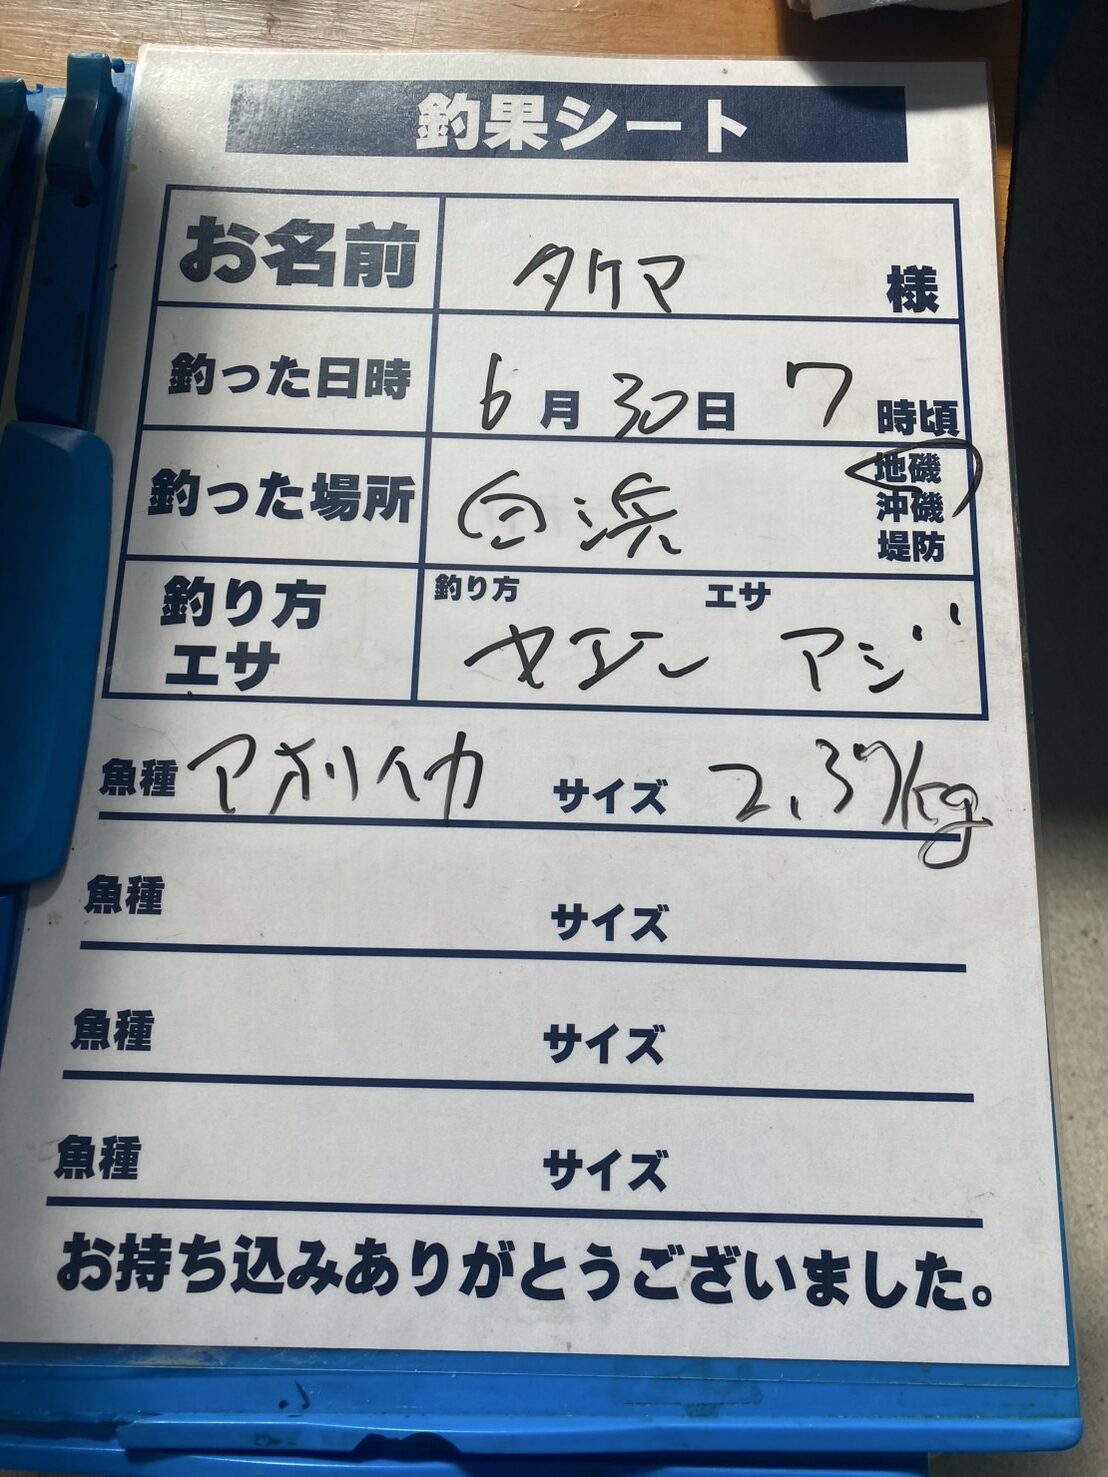 釣果シート
お名前 タケマ 様
釣った日時 6月30日 7時頃
釣った場所 白浜 地磯
沖磯
堤防
釣り方 エサ
釣り方
エサ ヤエン アジ
魚種 アオリイカ サイズ 2.37kg
魚種 サイズ
魚種 サイズ
魚種 サイズ
お持ち込みありがとうございました。